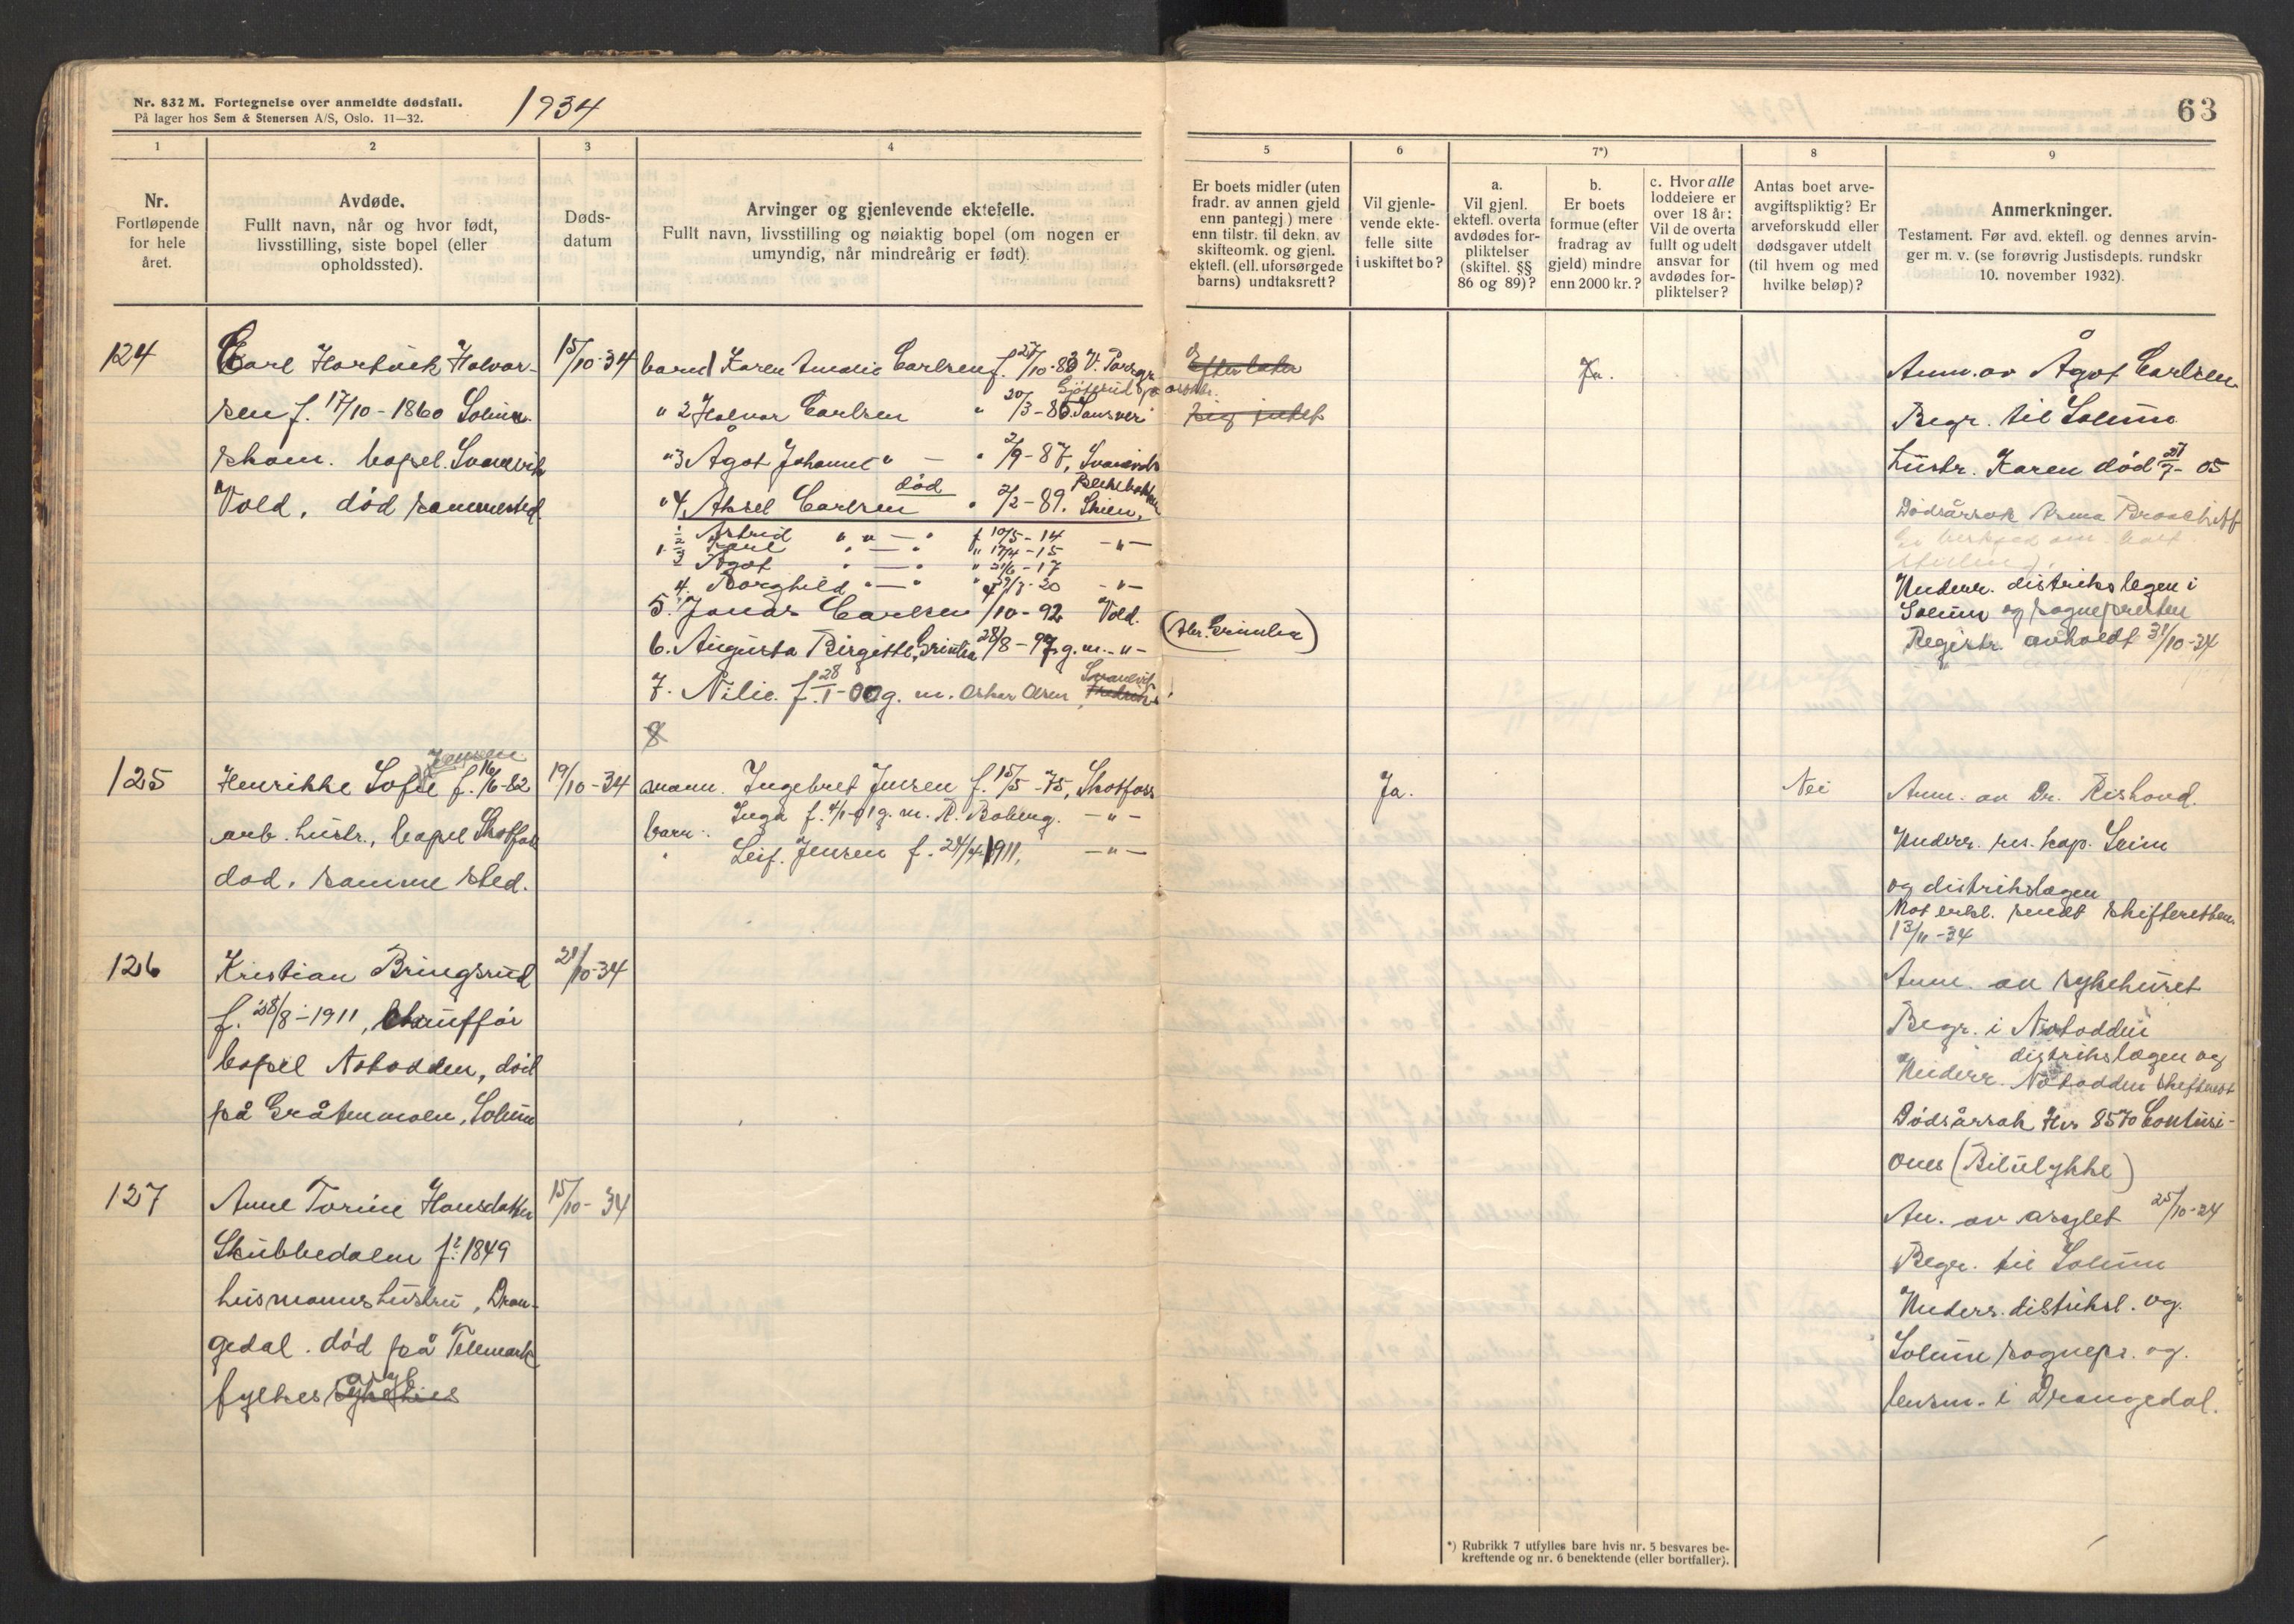 Nr. 832 M. Fortegnelse over anmeldte dødsfall.
På lager hos Sem & Stenersen A/S, Oslo. 11—32.
1934
63
1
2
3
4
5
6
7*)
8
9
Nr.
Fortløpende
for hele
året.
Avdøde.
Fullt navn, når og hvor født,
livsstilling, siste bopel (eller
opholdssted).
Døds-
datum
Arvinger og gjenlevende ektefelle.
Fullt navn, livsstilling og nøiaktig bopel (om nogen er
umyndig, når mindreårig er født).
Er boets midler (uten
fradr. av annen gjeld
enn pantegj) mere
enn tilstr. til dekn. av
skifteomk. og gjenl.
ektefl. (ell. uforsørgede
barns) undtaksrett?
Vil gjenle-
vende ekte-
felle sitte
i uskiftet bo?
a.
Vil gjenl.
ektefl. overta
avdødes for-
pliktelser
(skiftel. §§
86 og 89)?
b.
Er boets
formue (efter
fradrag av
gjeld) mindre
enn 2000 kr.?
c. Hvor alle
loddeiere er
over 18 år:
Vil de overta
fullt og udelt
ansvar for
avdødes for-
pliktelser?
Antas boet arve-
avgiftspliktig? Er
arveforskudd eller
dødsgaver utdelt
(til hvem og med
hvilke beløp)?
Anmerkninger.
Testament. Før avd. ektefl. og dennes arvin-
ger m. v. (se forøvrig Justisdepts. rundskr
10. november 1932).
124
Carl Hartvik Halvor-
sen f. 17/10-1860 Solum
skom. bopel. Svanvik
Vold, død sammested.
15/10-34
barn 1 Karen Amalie Carlsen f. 27/10-83 V. Porsgr.
" 2 Halvor Carlsen " 20/3-85
" 3 Agot Johanne " — " 2/9-87,
" 4. Aksel Carlsen død " 2/2-89. Skien.
1 Astrid " " — " f 10/5-14
2 Karl " — " " 17/4-15 — " —
3 Agot " — " " 21/6-17
4. Borghild " — " 29/3-20 - " -
5. Jonas Carlsen /10-92 Vold.
6. Augusta Birgitte, Grimlia 28/8-97 g. m. - " - (Abr. Grimlia)
7. Nilie. f. 28/1-00 g. m. Oskar Olsen,
8
Efterlater
sig intet
Ja.
Anm. av Ågot Carlsen
Begr. til Solum
hustr. Karen død 21/7-05
Dødsårsak
Underr. distrikslegen i
Solum og sognepresten
Registr. avholdt 31/10-34
125
Henrikke Sofie Jensen f. 16/6-82
arb. hustr., bopel Skotfoss
død. samme sted.
19/10-34
mann. Ingebret Jensen f. 15/5-75, Skotfoss
barn: Inga f. 4/1-01 g. m. R. Boberg. — " —
" Leif. Jensen f. 24/4 1911, — " —
Ja.
Nei
Anm. av Dr. Rishovd.
Underr. res. kap. Seim
og distrikslægen
Mot erkl. sendt skifteretten
13/11-34
126
Kristian Bringsrud
f. 28/8-1911, Chauffør
bopel Notodden, død
på Gråtenmoen, Solum
21/10-34
Anm. av sykehuset
Begr. i Notodden
Underr. distrikslægen og
Notodden skifteret
Dødsårsak Hvs 8570 Contusi-
ones (Bilulykke)
127
Anne Torine Hansdatter
Skubbedalen f. 1849
husmannshustru, Dran-
gedal. død på Telemark
fylkes asyl
15/10-34
An. av asylet 25/10-24
Begr. til Solum
Underr. distriksl. og.
Solum sognepr. og.
lensm. i Drangedal.
*) Rubrikk 7 utfylles bare hvis nr. 5 besvares be-
kreftende og nr. 6 benektende (eller bortfaller).